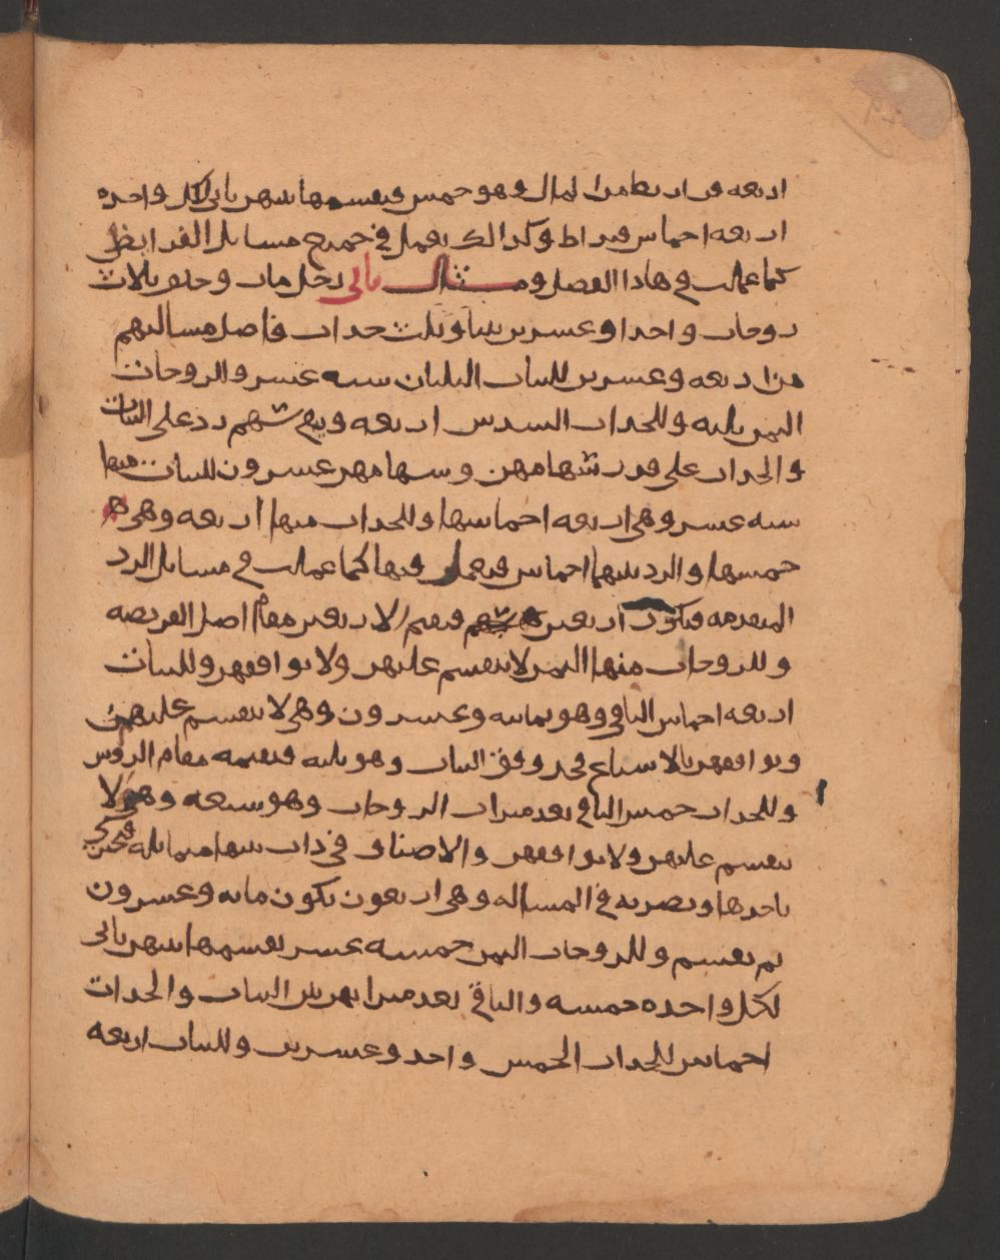 اربعه قراريط من المال وهو خمس فيقسمها بينهن ياتي لكل واحده
اربعه اخماس قيراط وكذالك يعمل في جميع مسايل الفرايض
كما عملت في هاذا الفصل ومثال ثاني رجل مات وخلف ثلاث
زوجات واحدا وعشرين بنتا وثلث جدات فاصل مسالتهم
من اربعه وعشرين للبنات الثلثان سته عشر والزوجات
الثمن ثلثه وللجدات السدس اربعه وبقي سهم رد على البنات
والجدات على قدر سهامهن وسهامهن عشرون للبنات منها
سته عشر وهي اربعه اخماسها وللجدات منها اربعه وهي
خمسها والرد بينها اخماس فيعمل فيها كما عملت في مسايل الرد
المتقدمه فيكون اربعين فيقيم الاربعين مقام اصل الفريضه
وللزوجات منها الثمن لا ينقسم عليهن ولا يوافقهن وللبنات
اربعه اخماس الباقي وهو ثمانيه وعشرون وهي لا ينقسم عليهن
ويوافقهن بالاسباع فخذ وفق البنات وهو ثلثه فيقيمه مقام الروس
وللجدات خمس الباقي بعد ميراث الزوجات وهو سبعه وهو لا
ينقسم عليهن ولا يوافقهن والاصناف في ذات بينها متماثله فتجتزي
باحدها ويضربه في المساله وهي اربعون يكون مايه وعشرون
ثم يقسم وللزوجات الثمن خمسه عشر يقسمها بينهن ياتي
لكل واحده خمسه والباقي بعد ميراثهن بين البنات والجدات
اخماس للجدات الخمس واحد وعشرين وللبنات اربعه